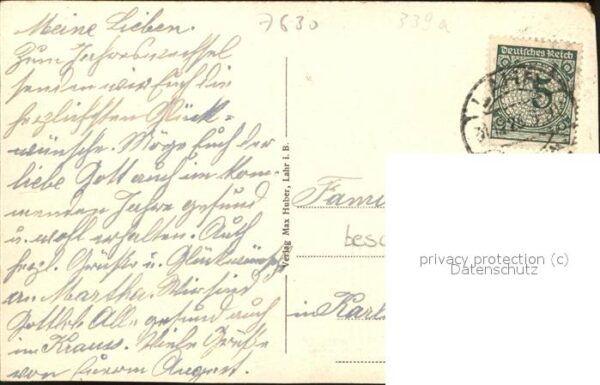 Meine Lieben.
Zum Jahreswechsel
senden wir Euch die
herzlichsten Glück-
wünsche. Möge Euch der
liebe Gott auch im kom-
menden Jahre gesund
u. wohl erhalten. Auch
herzl. Grüße u. Glückwünsche
an Martha. Wir sind
Gottlob Alle gesund auch
im Viele Grüße
von Eurem August.
7630
339a
Deutsches Reich
5
LAHR
Verlag Max Huber, Lahr i. B.
Fami
besc
in Karl
privacy protection (c)
Datenschutz